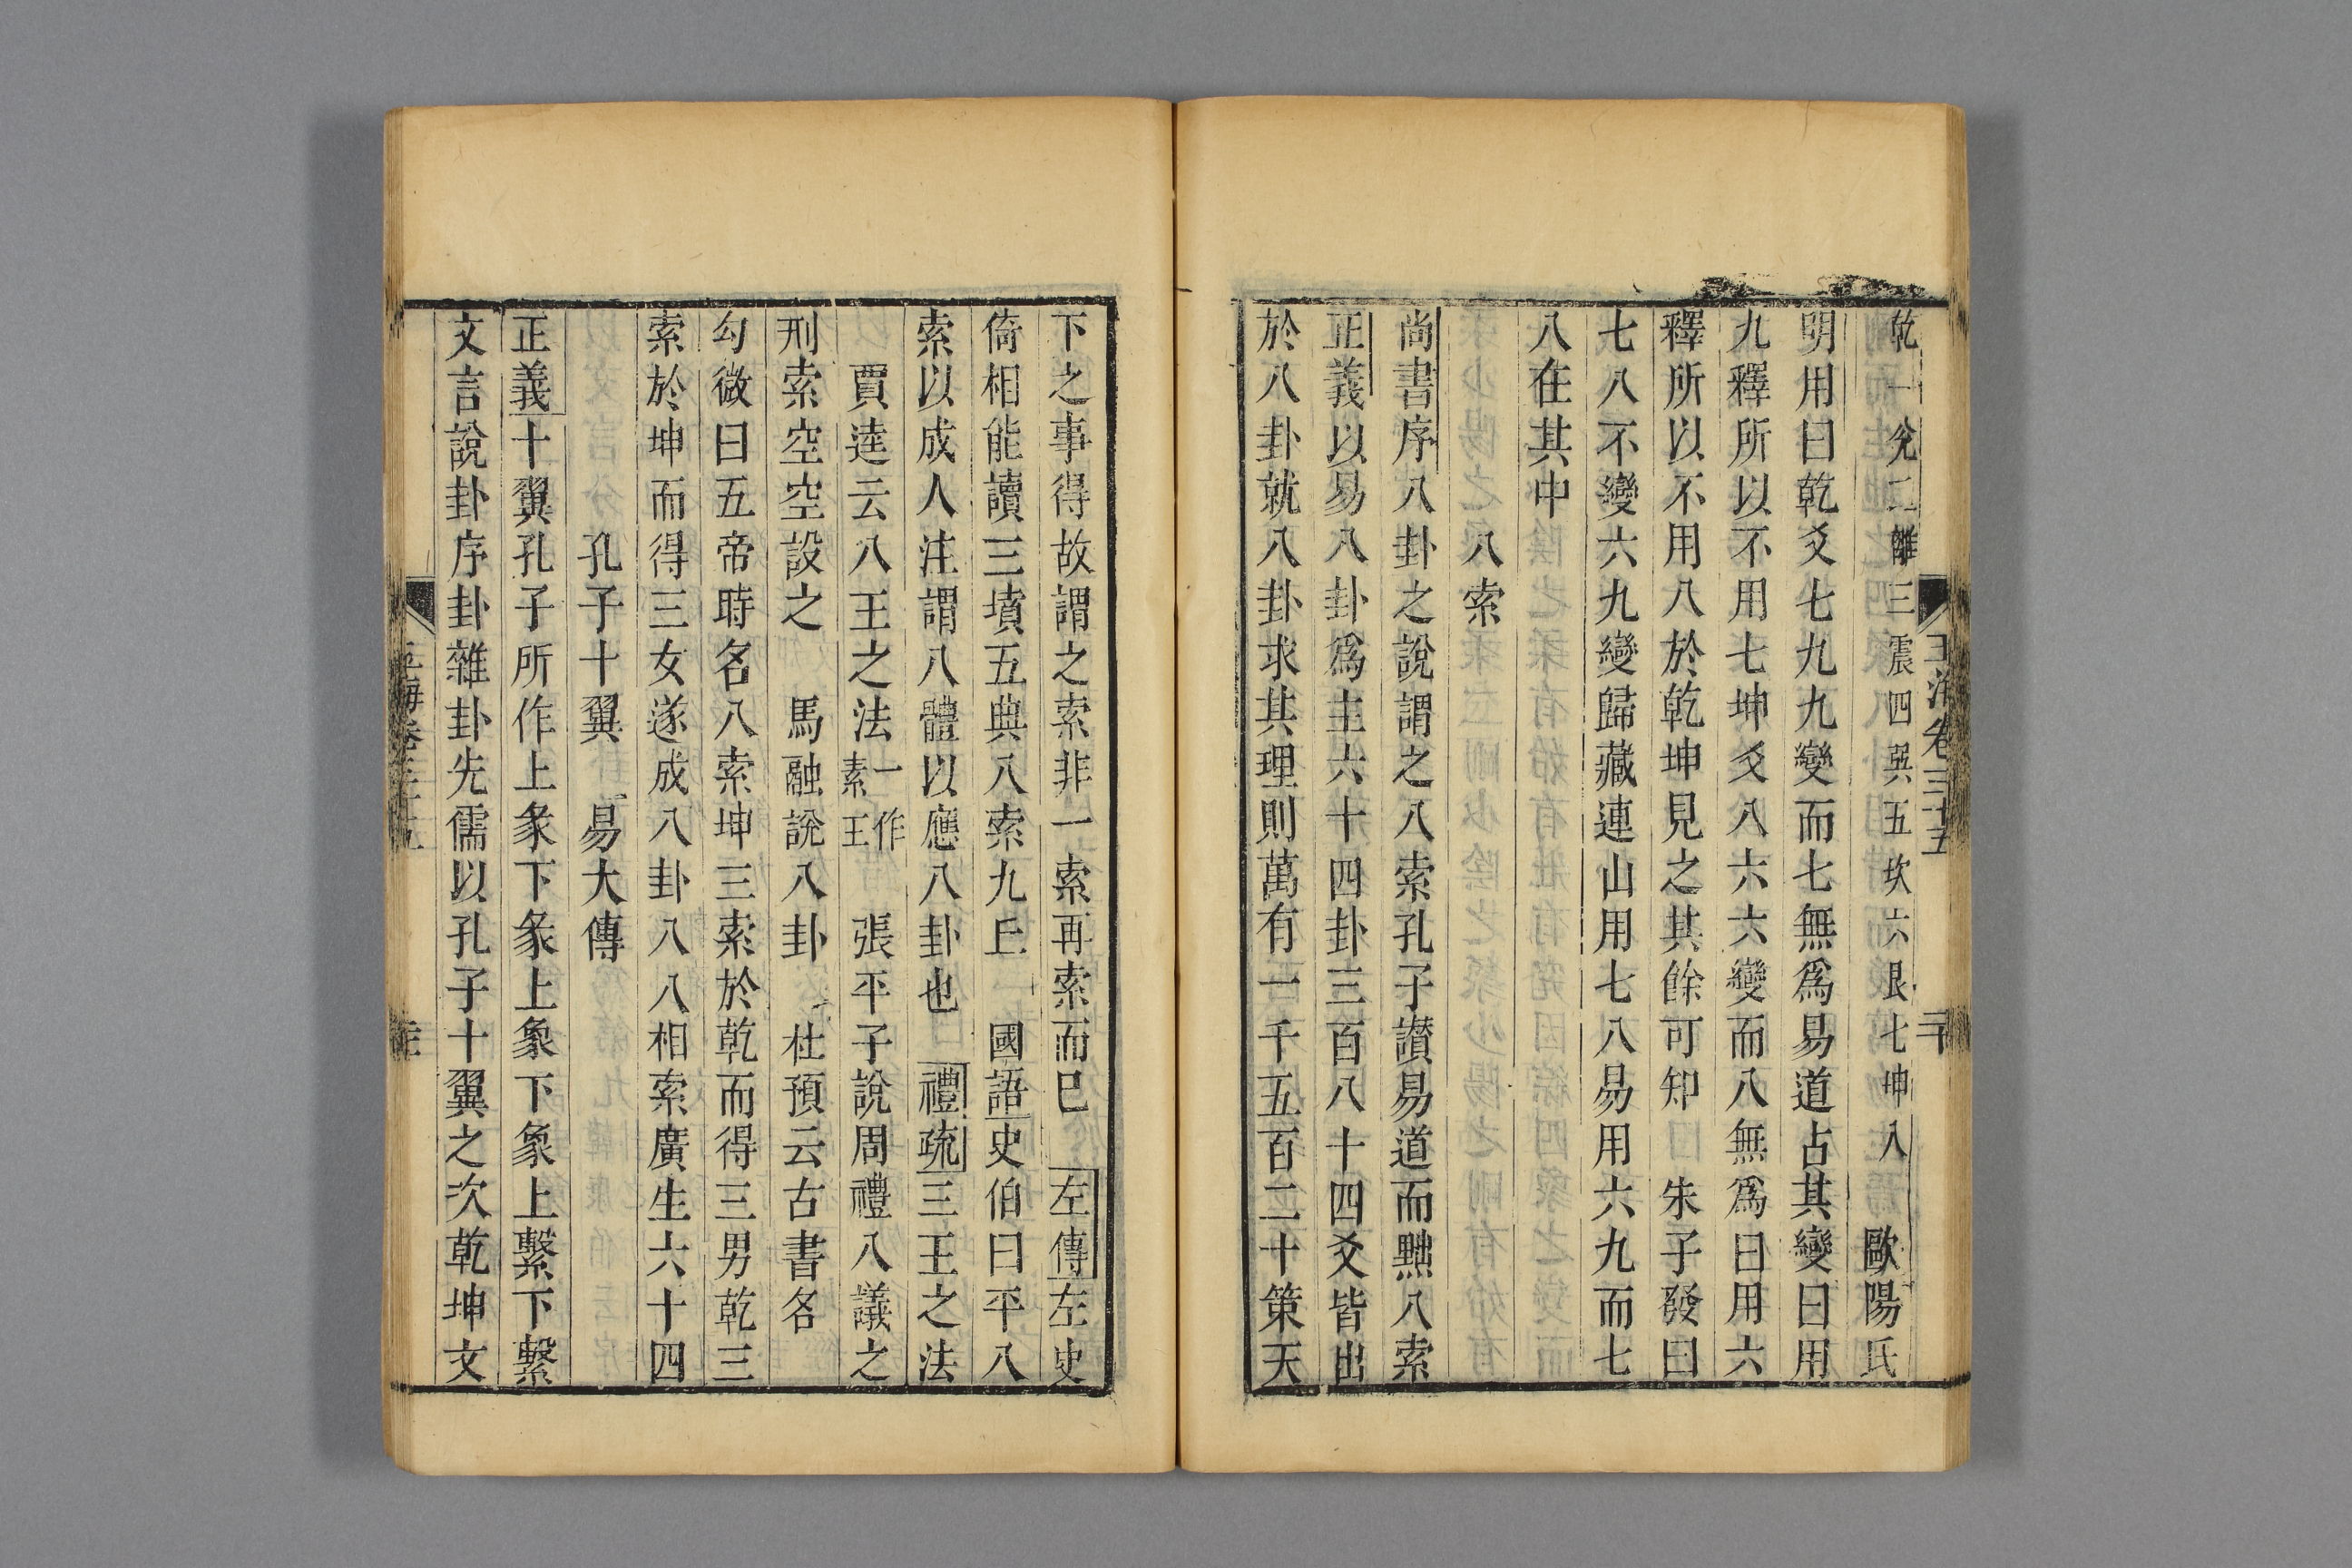 乾一兊二離三震四巽五坎六艮七坤八　歐陽氏
明用曰乾爻七九九變而七無爲易道占其變曰用
九釋所以不用七坤爻八六六變而八無爲曰用六
釋所以不用八於乾坤見之其餘可知　朱子發曰
七八不變六九變歸藏連山用七八易用六九而七
八在其中
八索
尚書序八卦之說謂之八索孔子讃易道而黜八索
正義以易八卦爲主六十四卦三百八十四爻皆出
於八卦就八卦求其理則萬有一千五百二十策天
玉海卷三十五
三十
下之事得故謂之索非一索再索而已　左傳左史
倚相能讀三墳五典八索九丘　國語史伯曰平八
索以成人注謂八體以應八卦也　禮疏三王之法
賈逵云八王之法一作素王　張平子說周禮八議之
刑索空空設之　馬融說八卦　杜預云古書名
勾微曰五帝時名八索坤三索於乾而得三男乾三
索於坤而得三女遂成八卦八八相索廣生六十四
孔子十翼　易大傳
正義十翼孔子所作上彖下彖上象下象上繫下繫
文言說卦序卦雜卦先儒以孔子十翼之次乾坤文